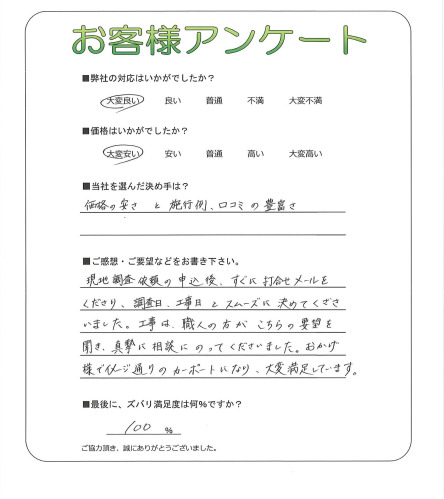 お客様アンケート
■弊社の対応はいかがでしたか？
大変良い 良い 普通 不満 大変不満
■価格はいかがでしたか？
大変安い 安い 普通 高い 大変高い
■当社を選んだ決め手は？
価格の安さ と 施行例、口コミの豊富さ
■ご感想・ご要望などをお書き下さい。
現地調査依頼の申込後、すぐに打合せメールを
くださり、調査日、工事日とスムーズに決めてくださ
いました。工事は、職人の方がこちらの要望を
聞き、真摯に相談にのってくださいました。おかげ
様でイメージ通りのカーポートになり、大変満足しています。
■最後に、ズバリ満足度は何%ですか？
100 %
ご協力頂き、誠にありがとうございました。